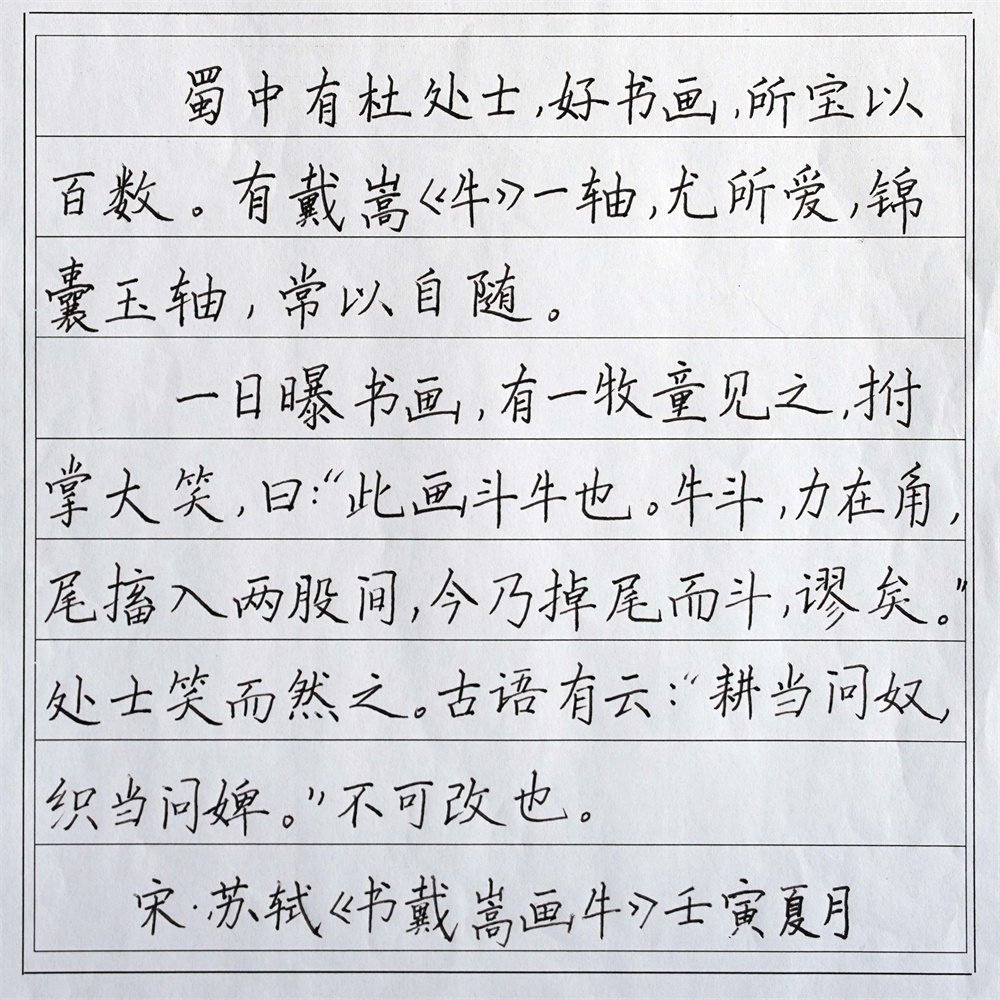 蜀中有杜处士,好书画,所宝以
百数。有戴嵩《牛》一轴,尤所爱,锦
囊玉轴,常以自随。
一日曝书画,有一牧童见之,拊
掌大笑,曰:“此画斗牛也。牛斗,力在角,
尾搐入两股间,今乃掉尾而斗,谬矣。”
处士笑而然之。古语有云:“耕当问奴,
织当问婢。”不可改也。
宋·苏轼《书戴嵩画牛》壬寅夏月